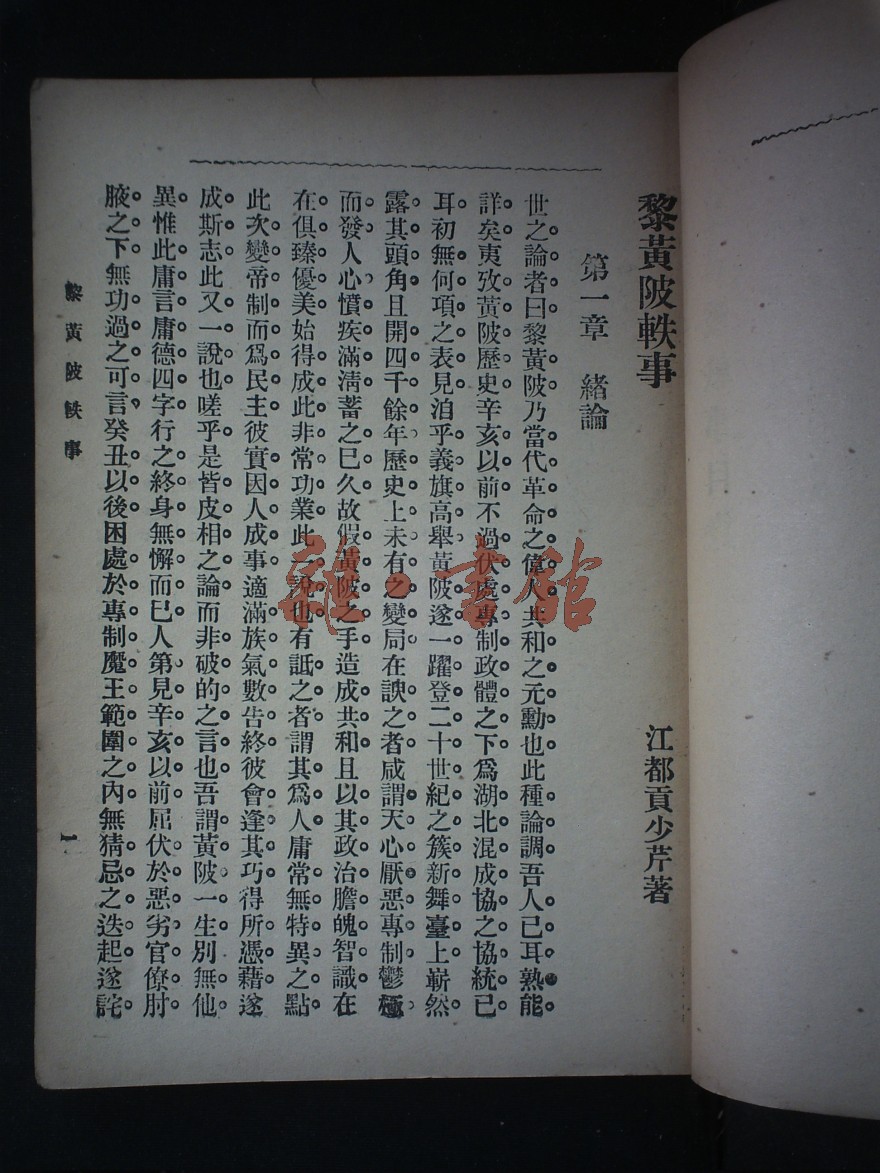 黎黃陂軼事
江都貢少芹著
第一章　緒論
世之論者曰黎黃陂乃當代革命之偉人共和之元勳也此種論調吾人已耳熟能
詳矣夷攷黃陂歷史辛亥以前不過伏處專制政體之下爲湖北混成協之協統已
耳初無何項之表見洎乎義旗高舉黃陂遂一躍登二十世紀之簇新舞臺上嶄然
露其頭角且開四千餘年歷史上未有之變局在諛之者咸謂天心厭惡專制鬱極
而發人心憤疾滿淸蓄之已久故假黃陂之手造成共和且以其政治膽魄智識在
在俱臻優美始得成此非常功業此一說也有詆之者謂其爲人庸常無特異之點
此次變帝制而爲民主彼實因人成事適滿族氣數告終彼會逢其巧得所憑藉遂
成斯志此又一說也嗟乎是皆皮相之論而非破的之言也吾謂黃陂一生別無他
異惟此庸言庸德四字行之終身無懈而已人第見辛亥以前屈伏於惡劣官僚肘
腋之下無功過之可言癸丑以後困處於專制魔王範圍之內無猜忌之迭起遂詫
黎黃陂軼事
一
雜·書館